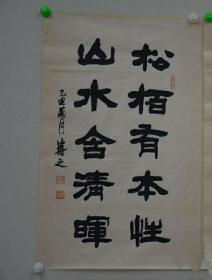 松栢有本性
山水含清暉
乙丑
月
之